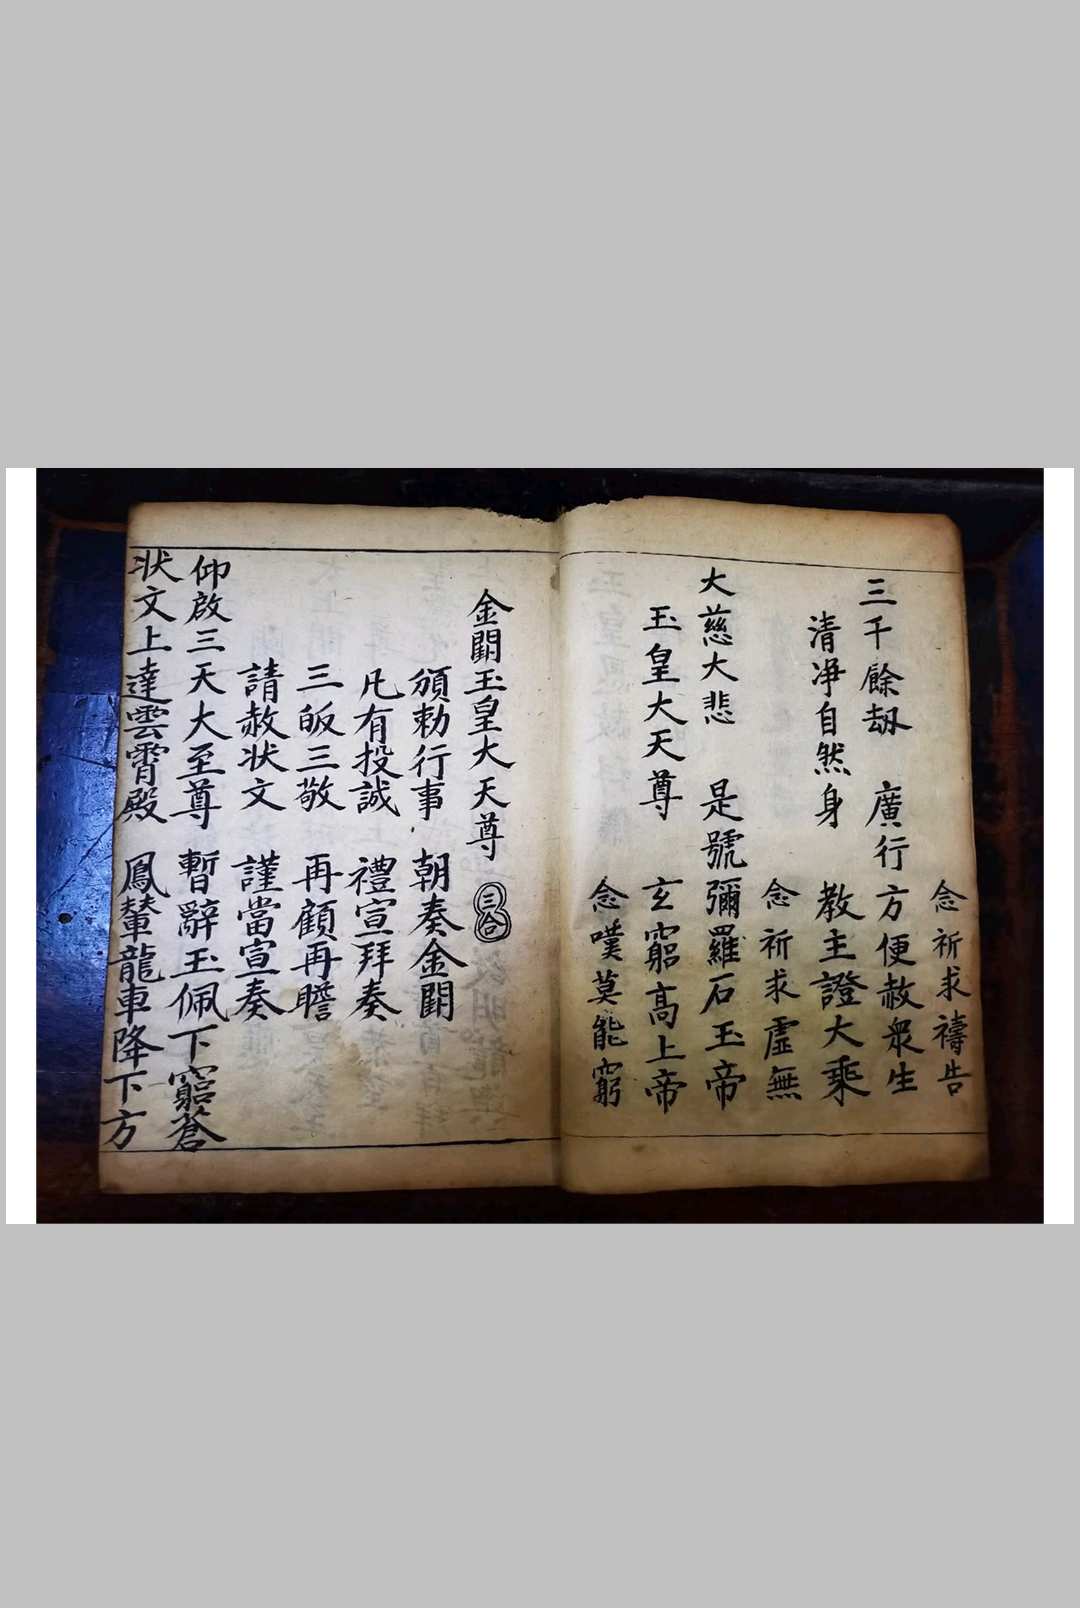 念祈求禱告
三千餘劫 廣行方便赦衆生
清凈自然身 教主證大乘
念祈求虛無
大慈大悲 是號彌羅石玉帝
玉皇大天尊 玄窮高上帝
念嘆莫能窮
金闕玉皇大天尊 三合
頒勅行事 朝奏金闕
凡有投誠 禮宣拜奏
三皈三敬 再顧再瞻
請赦状文 謹當宣奏
仰啟三天大至尊 暫辭玉佩下窮蒼
状文上達雲霄殿 鳳輦龍車降下方